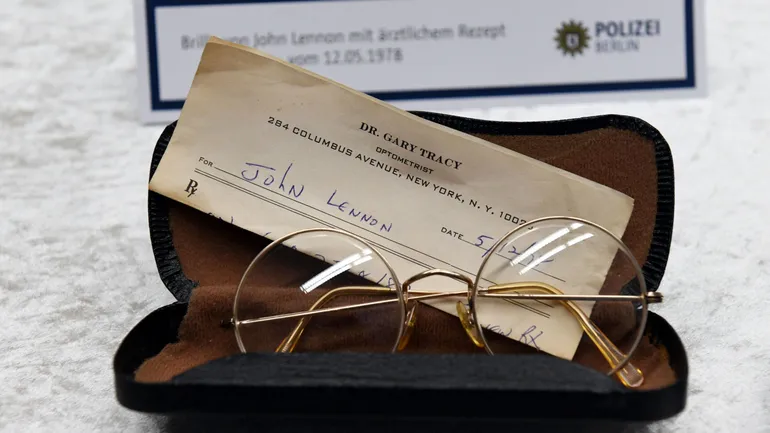 Brille von John Lennon mit ärztlichem Rezept
vom 12.05.1978
POLIZEI
BERLIN
DR. GARY TRACY
OPTOMETRIST
284 COLUMBUS AVENUE, NEW YORK, N. Y. 1002
FOR JOHN LENNON
DATE
Rx
RX